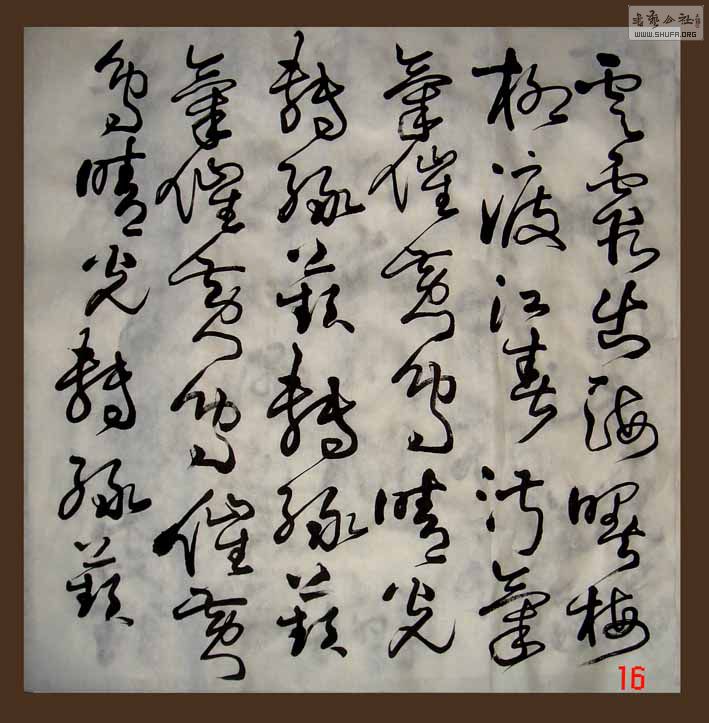 雲霞出海曙梅
柳渡江春淑氣
氣催黃鳥晴光
轉綠蘋轉綠蘋
氣催黃鳥催黃
鳥晴光轉綠蘋
WWW.SHUFA.ORG
16